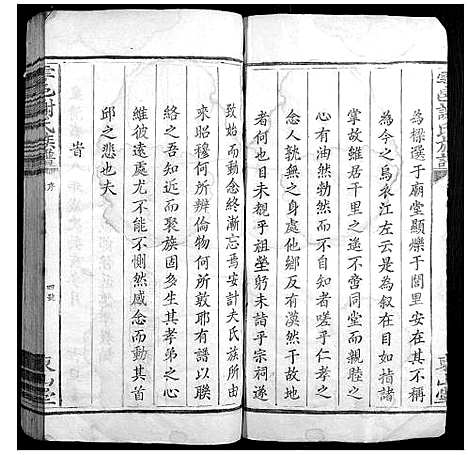 雩邑謝氏族譜
東山堂
為樑選于廟堂顯爍于閭里安在其不稱
為今之烏衣江左云是為叙在目如指諸
掌故雖居千里之遙不啻同堂而親睦之
心有油然勃然而不自知者嗟乎仁孝之
念人孰無之身處他鄉反有漠然于故地
者何者也目未親乎祖塋躬未詣乎宗祠遂
致始而動念終漸忘焉安計夫氏族所由
來昭穆何所辨倫物何所敦耶有譜以聯
絡之吾知近而聚族固多生其孝弟之心
維彼遠處尤不能不惻然感念而動其首
邱之悲也夫
首
雩邑謝氏族譜
序
四號
東山堂